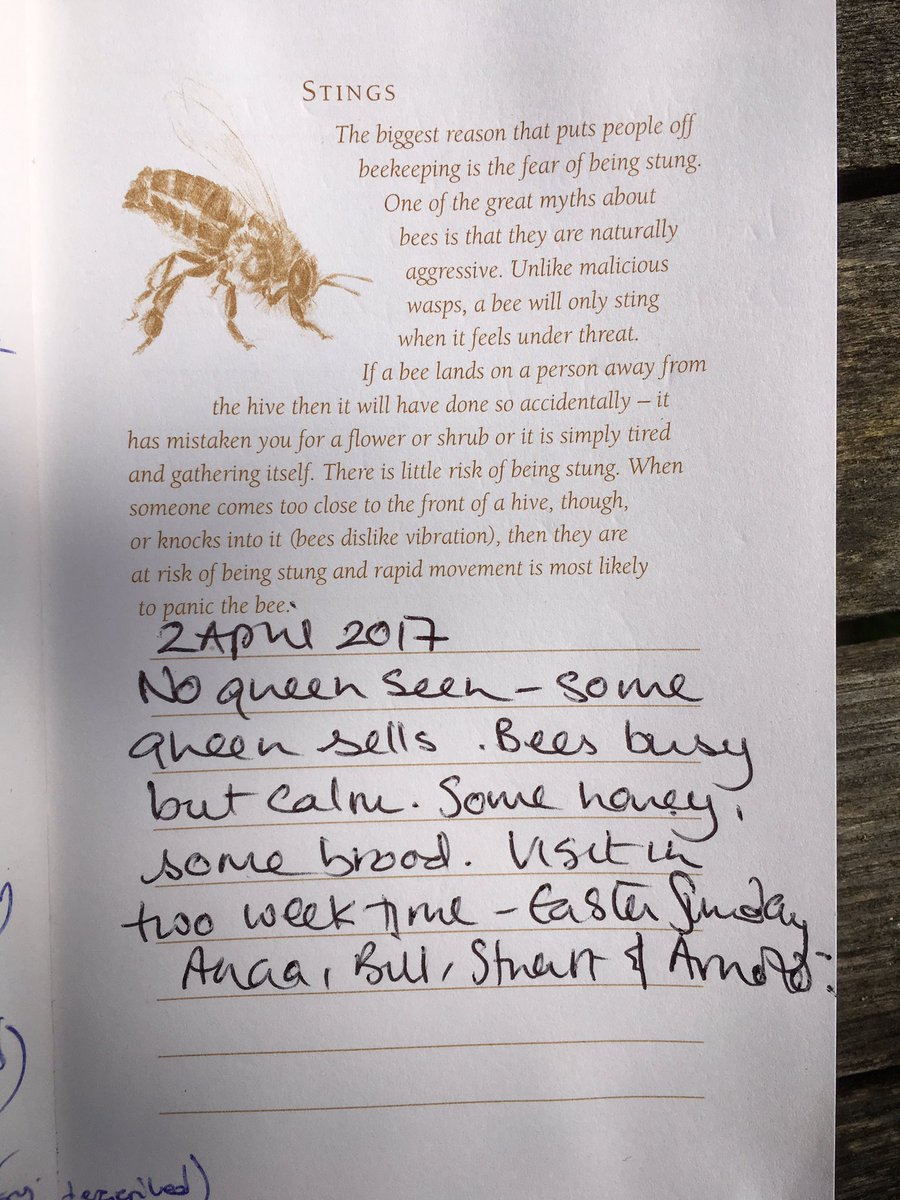 STINGS
The biggest reason that puts people off
beekeeping is the fear of being stung.
One of the great myths about
bees is that they are naturally
aggressive. Unlike malicious
wasps, a bee will only sting
when it feels under threat.
If a bee lands on a person away from
the hive then it will have done so accidentally – it
has mistaken you for a flower or shrub or it is simply tired
and gathering itself. There is little risk of being stung. When
someone comes too close to the front of a hive, though,
or knocks into it (bees dislike vibration), then they are
at risk of being stung and rapid movement is most likely
to panic the bee.
2 April 2017
No queen seen – some
queen sells. Bees busy
but calm. Some honey,
some brood. Visit in
two week time – Easter Sunday
Bill, Stuart & Arnold
described)